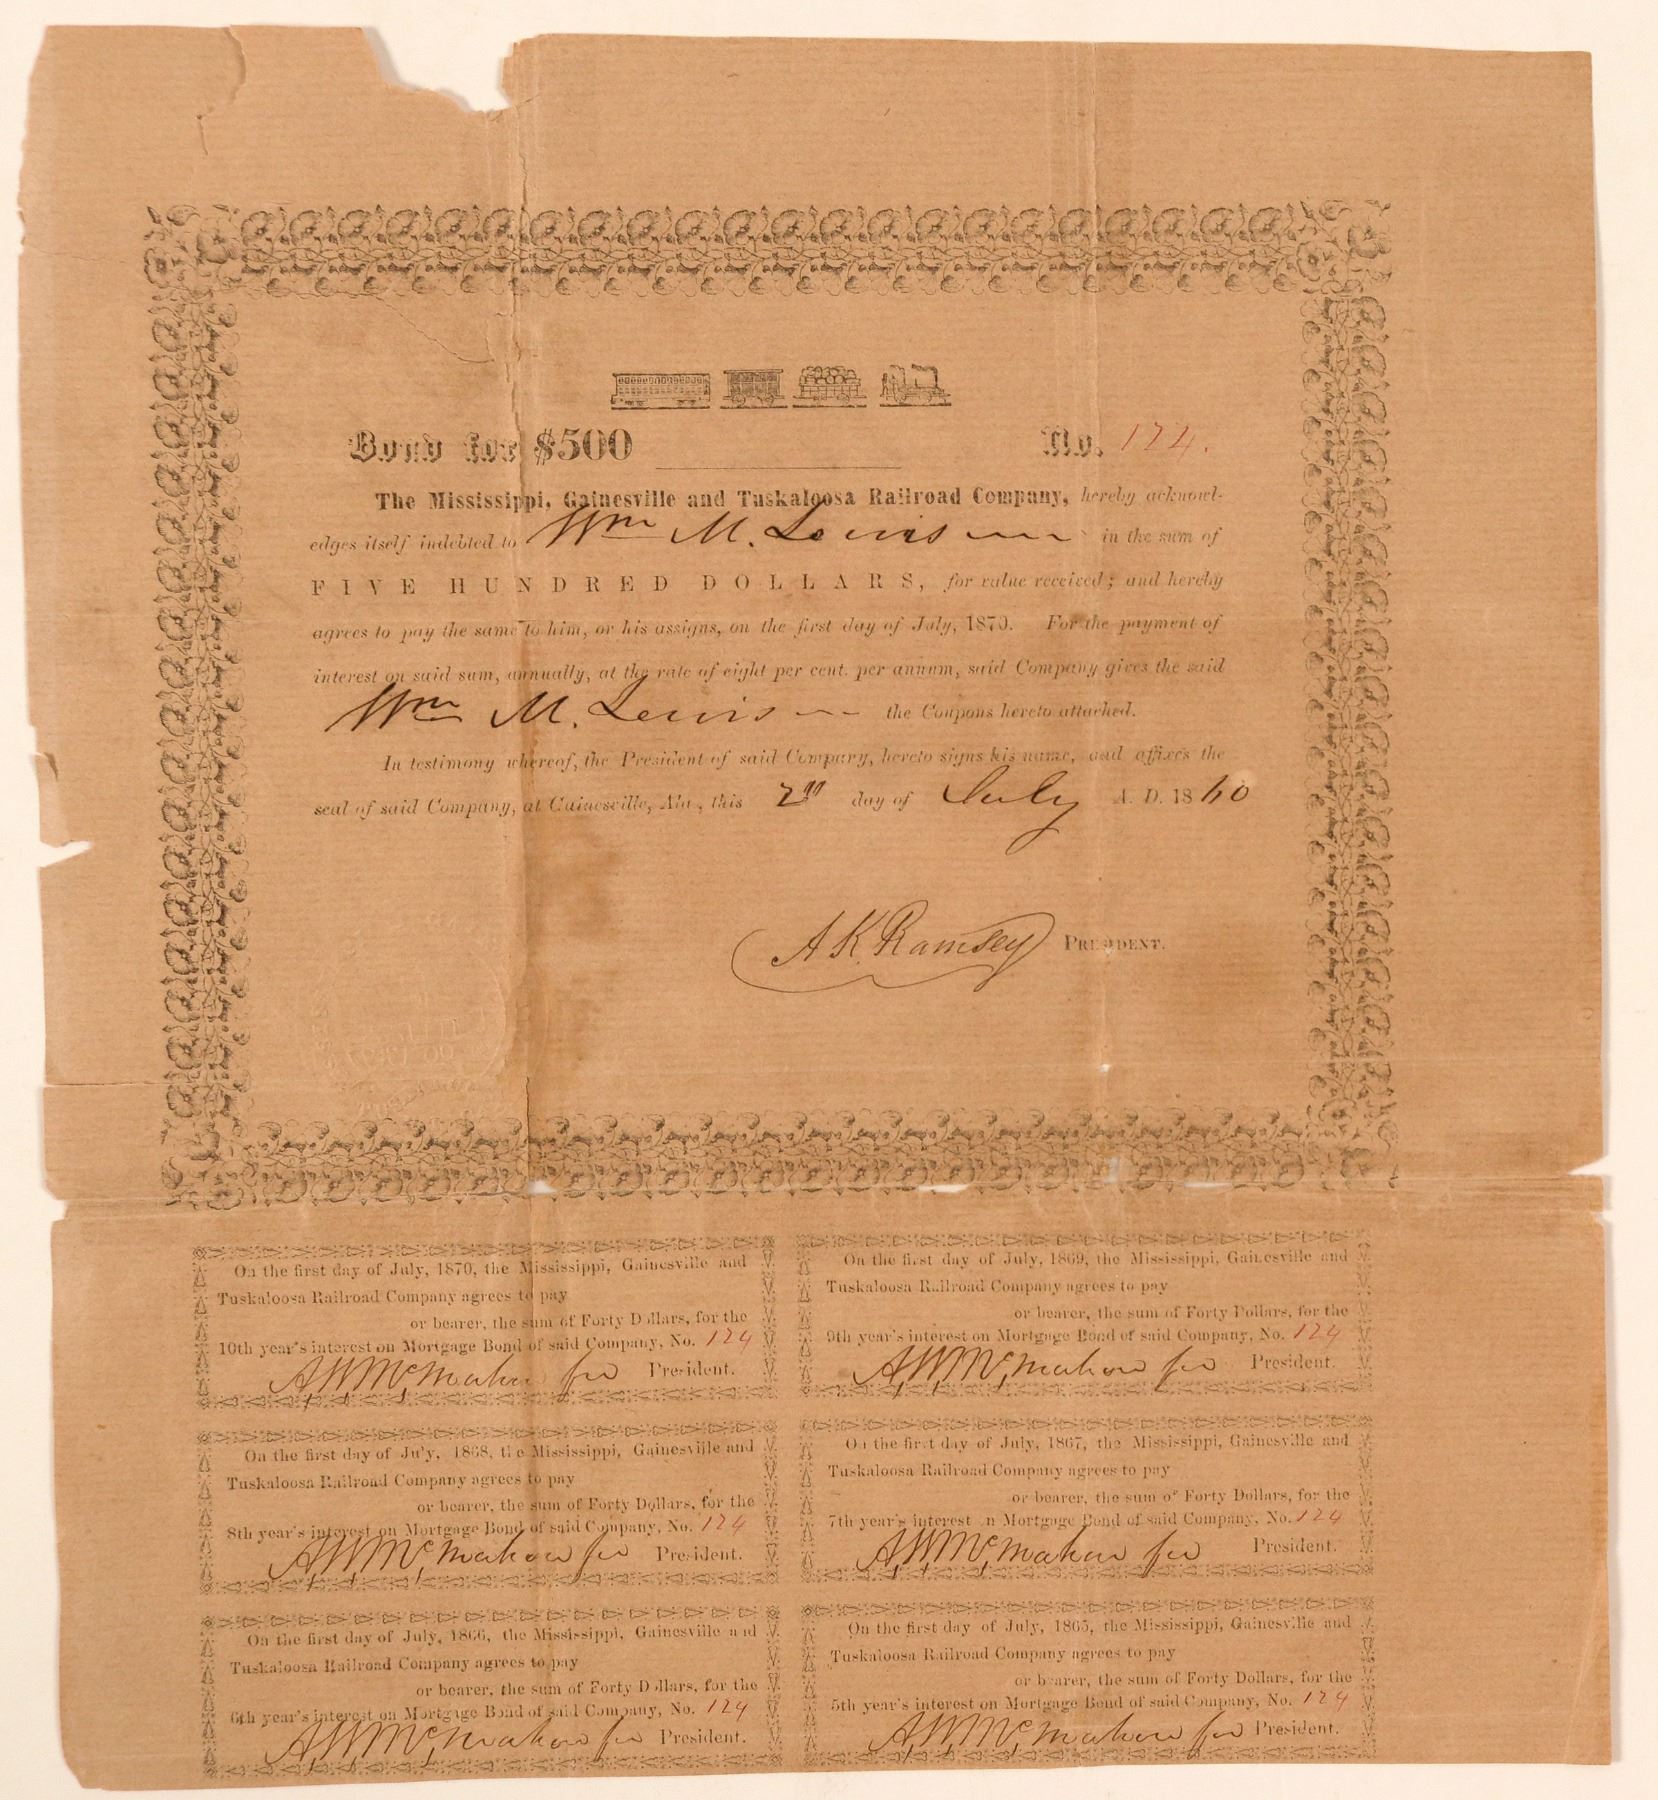 Bond for $500 No. 124.
The Mississippi, Gainesville and Tuskaloosa Railroad Company, hereby acknowl-
edges itself indebted to Wm M. Lewis in the sum of
FIVE HUNDRED DOLLARS, for value received; and hereby
agrees to pay the same to him, or his assigns, on the first day of July, 1870. For the payment of
interest on said sum, annually, at the rate of eight per cent. per annum, said Company gives the said
Wm M. Lewis the Coupons hereto attached.
In testimony whereof, the President of said Company, hereto signs his name, and affixes the
seal of said Company, at Gainesville, Ala., this 2nd day of July A. D. 1860
A K Ramsey PRESIDENT.
On the first day of July, 1870, the Mississippi, Gainesville and
Tuskaloosa Railroad Company agrees to pay
or bearer, the sum of Forty Dollars, for the
10th year's interest on Mortgage Bond of said Company, No. 124
A, W, Mc, Mahon for President.
On the first day of July, 1869, the Mississippi, Gainesville and
Tuskaloosa Railroad Company agrees to pay
or bearer, the sum of Forty Dollars, for the
9th year's interest on Mortgage Bond of said Company, No. 124
A, W, Mc, Mahon for President.
On the first day of July, 1868, the Mississippi, Gainesville and
Tuskaloosa Railroad Company agrees to pay
or bearer, the sum of Forty Dollars, for the
8th year's interest on Mortgage Bond of said Company, No. 124
A, W, Mc, Mahon for President.
On the first day of July, 1867, the Mississippi, Gainesville and
Tuskaloosa Railroad Company agrees to pay
or bearer, the sum of Forty Dollars, for the
7th year's interest on Mortgage Bond of said Company, No. 124
A, W, Mc, Mahon for President.
On the first day of July, 1866, the Mississippi, Gainesville and
Tuskaloosa Railroad Company agrees to pay
or bearer, the sum of Forty Dollars, for the
6th year's interest on Mortgage Bond of said Company, No. 124
A, W, Mc, Mahon for President.
On the first day of July, 1865, the Mississippi, Gainesville and
Tuskaloosa Railroad Company agrees to pay
or bearer, the sum of Forty Dollars, for the
5th year's interest on Mortgage Bond of said Company, No. 124
A, W, Mc, Mahon for President.